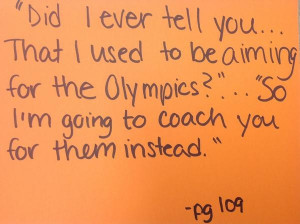 "Did I ever tell you...
That I used to be aiming
for the Olympics?"..."So
I'm going to coach you
for them instead."
-pg 109